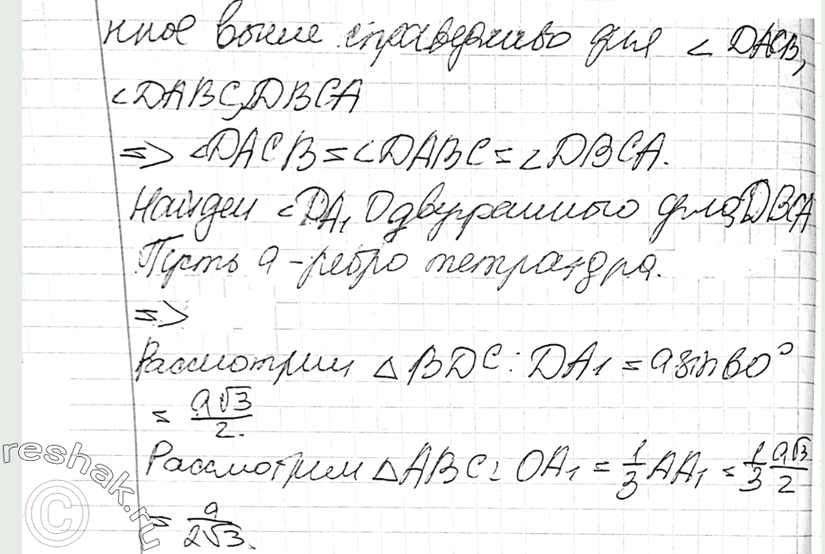 нное выше справедливо для ∠DACB,
∠DABC, DBCA
=> ∠DACB = ∠DABC = ∠DBCA.
Найдем ∠DA₁O двугранного угла DBCA
Пусть a - ребро тетраэдра.
=>
Рассмотрим △BDC: DA₁ = a sin 60°
= a√3/2.
Рассмотрим △ABC: OA₁ = 1/3 AA₁ = 1/3 a√3/2
= a/2√3.
©reshak.ru